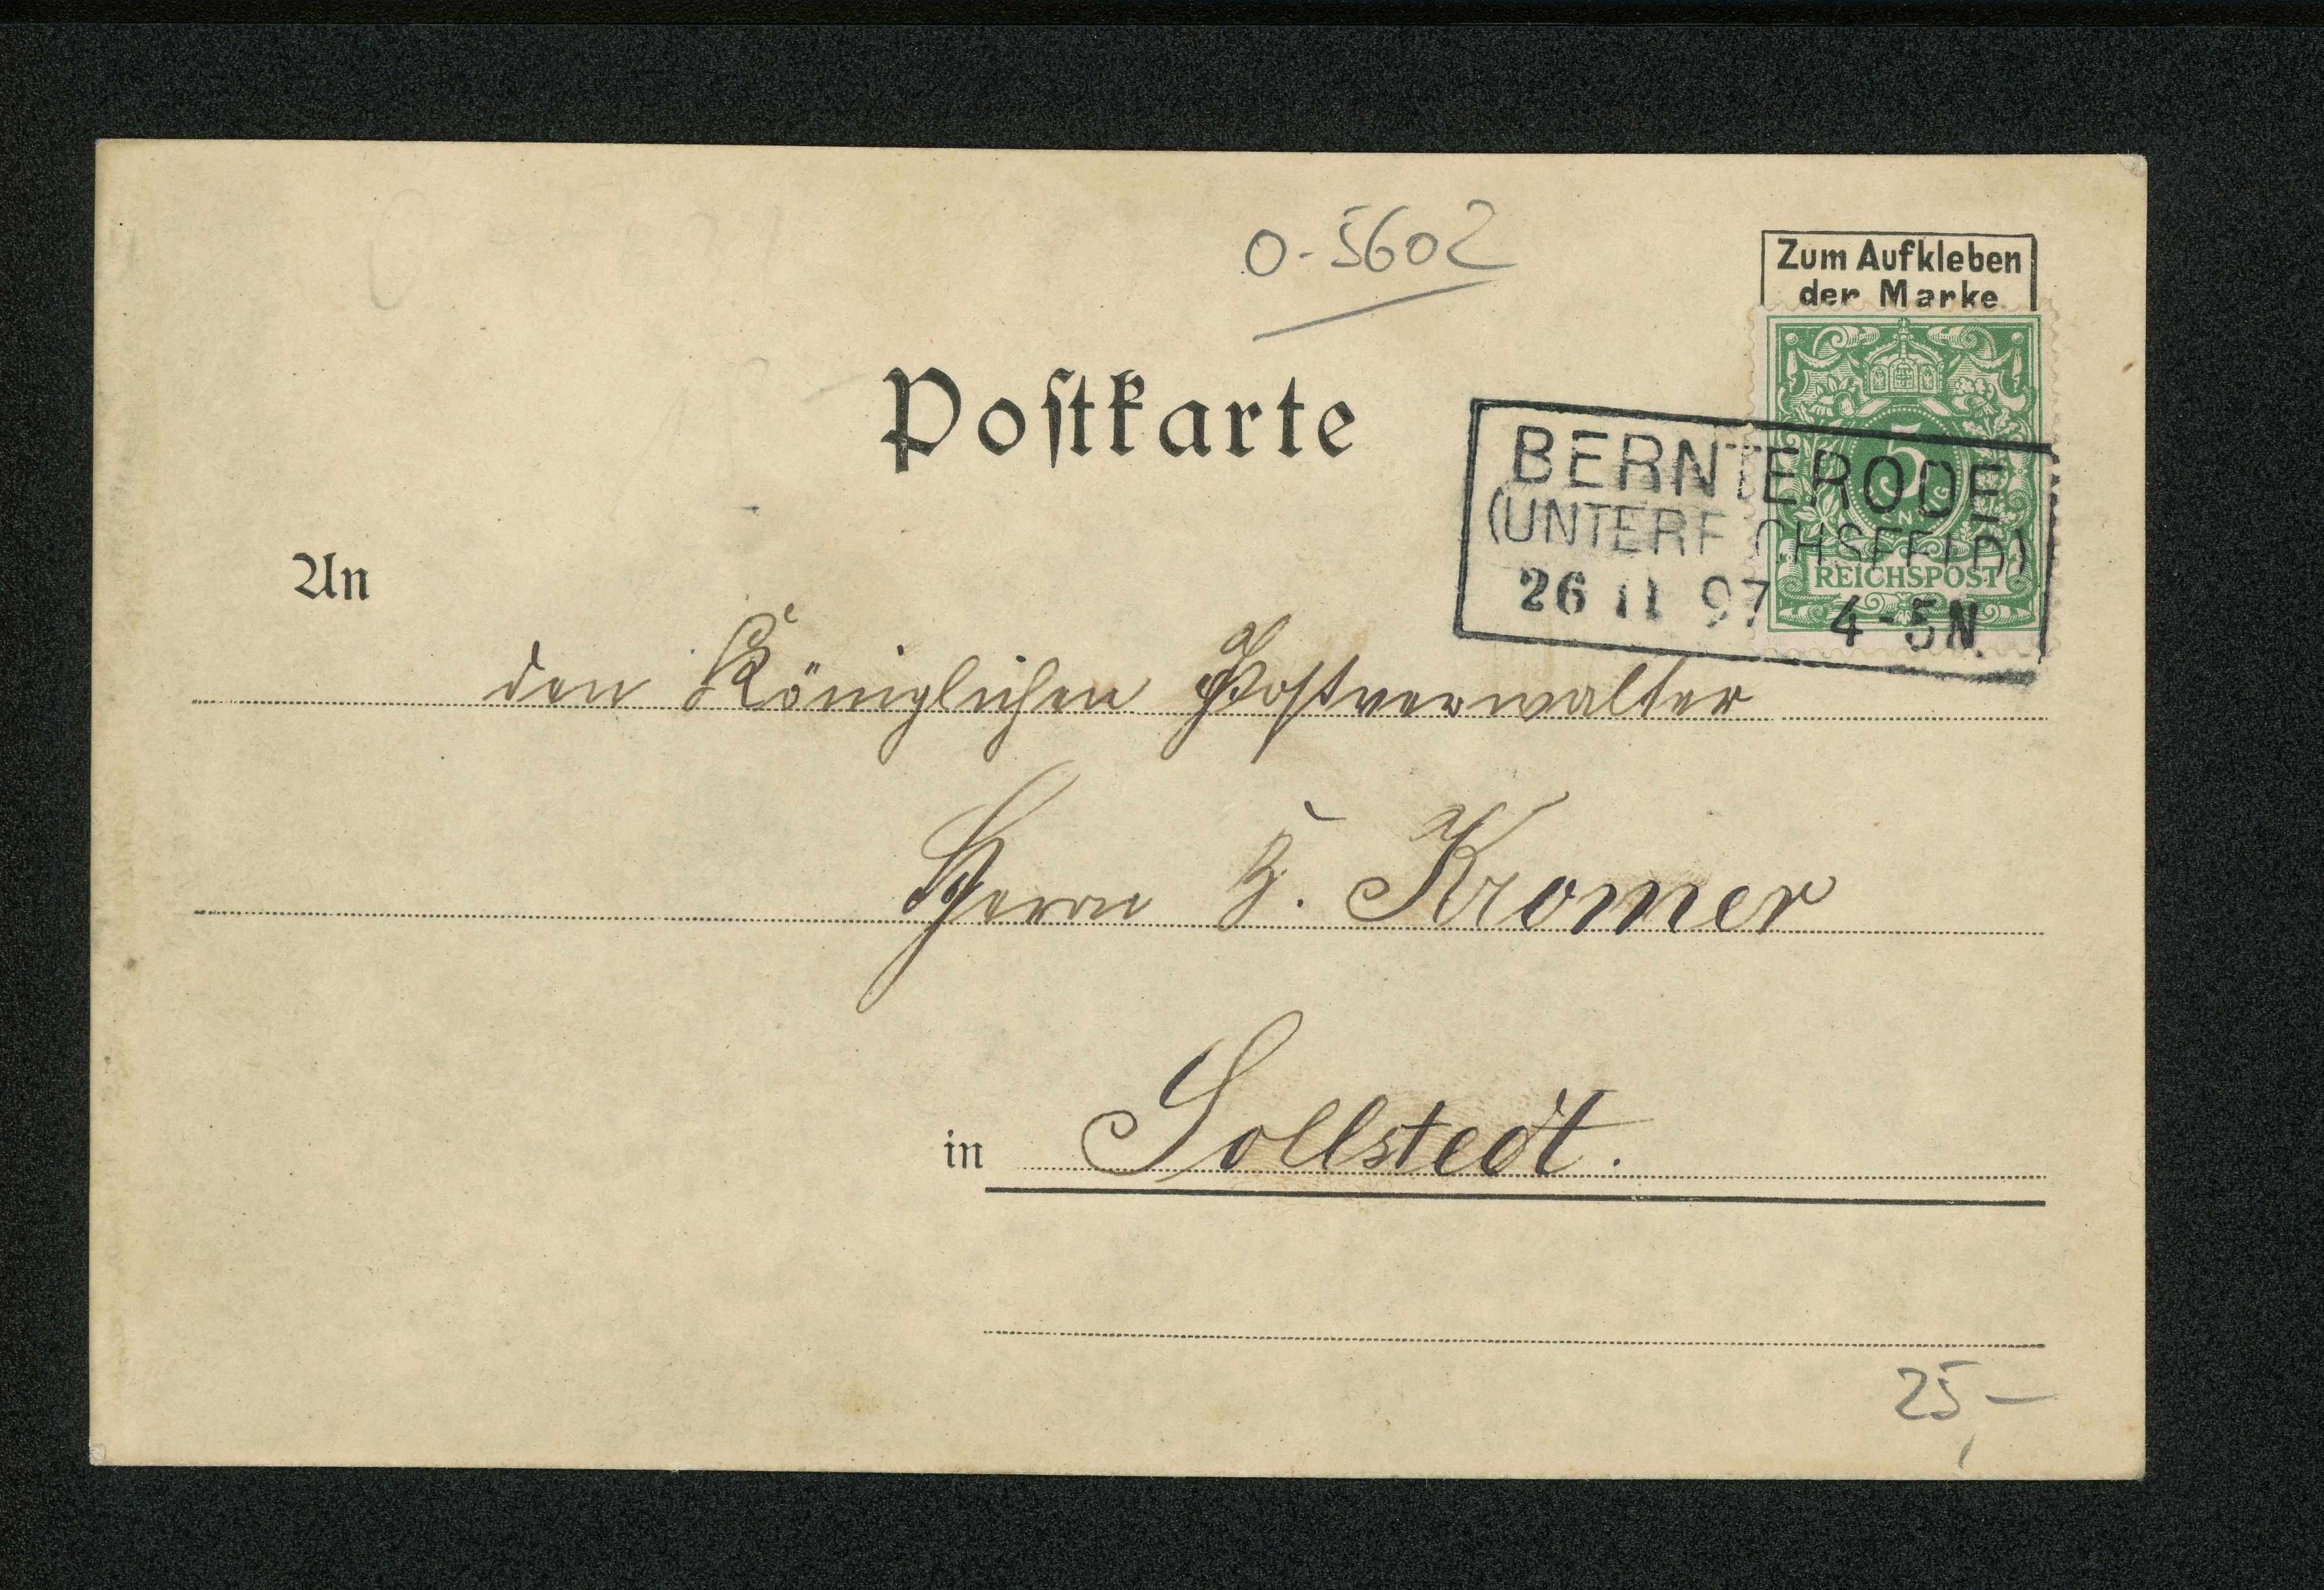 0-5602
Zum Aufkleben
der Marke
Postkarte
5
REICHSPOST
BERNTERODE
(UNTEREICHSFELD)
26 11 97 4-5N.
An
den Königlichen Postverwalter
Herrn H. Kromer
in Sollstedt.
25,-